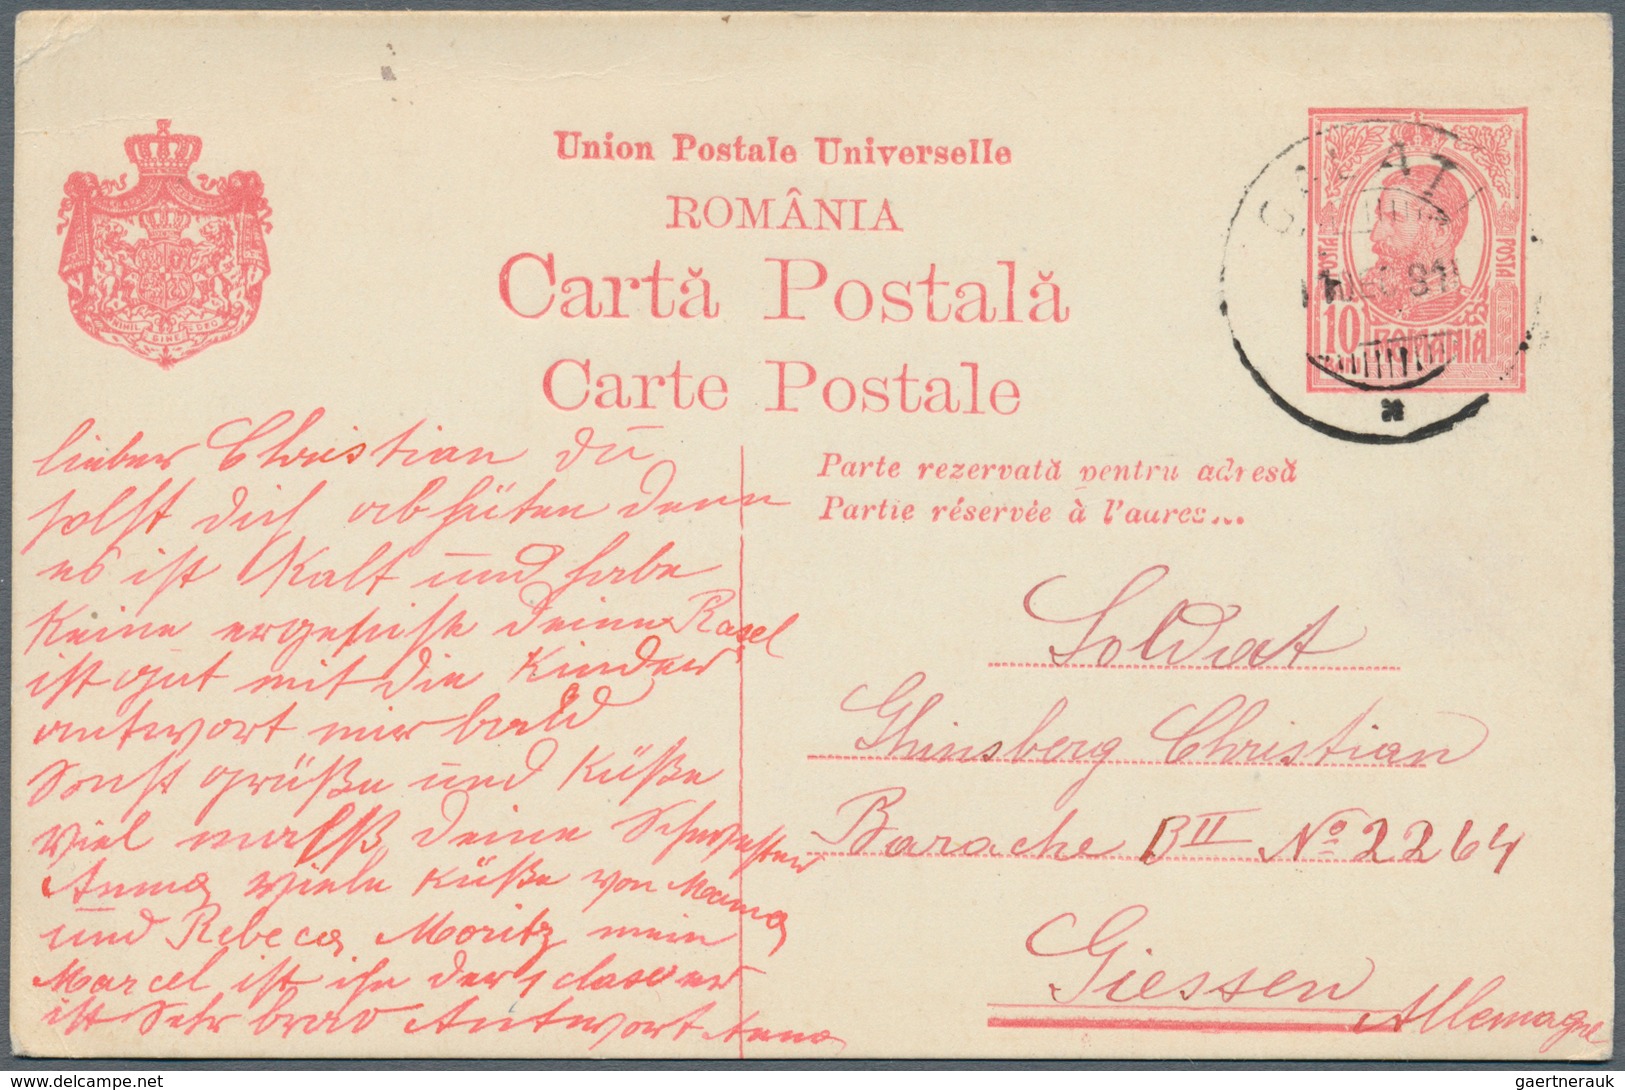 Union Postale Universelle
ROMÂNIA
Cartă Postală
Carte Postale
NIHIL SINE DEO
GALATI
DEC
POSTA
POSTA
10
BANI
ROMANIA
Parte rezervată pentru adresă
Partie réservée à l'adres...
lieber Christian du
solst dich abhüten denn
es ist Kalt und habe
Keine deine
ist gut mit die Kinder
antwort mir bald
Sonst grüße und Küße
viel deine Schwester
Anna viele Küße von Mama
und Rebeca Moritz mein
Marcel ist in der 1
ist Sehr brav Antwort Anna
Soldat
Ghinsberg Christian
Barache BII No 2264
Giessen
Allemagne
gaertnerauk